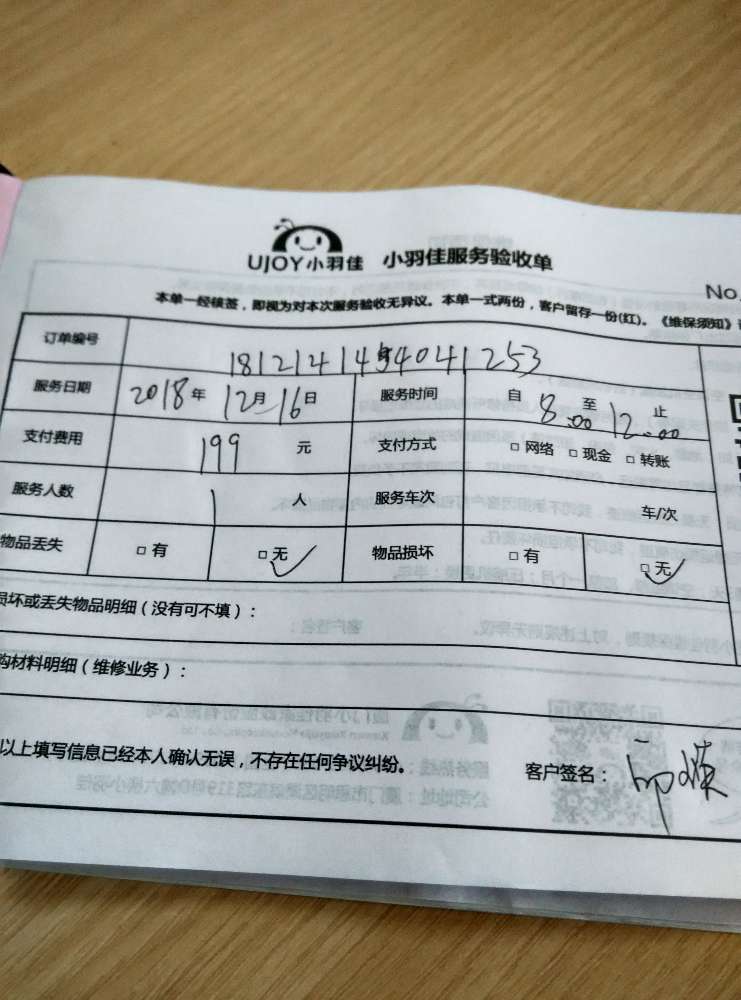 UJOY小羽佳 小羽佳服务验收单
No.
本单一经核签，即视为对本次服务验收无异议。本单一式两份，客户留存一份(红)。《维保须知》
订单编号 181214144041253
服务日期 2018年 12月 16日 服务时间 自 8:00 至 12:00 止
支付费用 199 元 支付方式 □网络 □现金 □转账
服务人数 1 人 服务车次 车/次
物品丢失 □有 □无 ✓ 物品损坏 □有 □无 ✓
损坏或丢失物品明细（没有可不填）：
购材料明细（维修业务）：
以上填写信息已经本人确认无误，不存在任何争议纠纷。 客户签名：